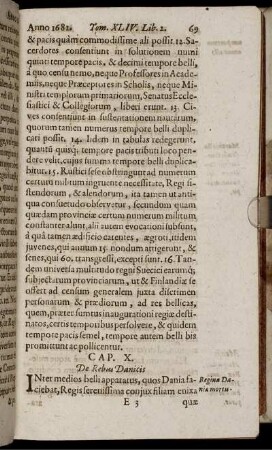 Anno 1682. Tom. XLIV. Lib. 2. 69
& pacis quàm commodissime ali possit. 12. Sa-
cerdotes consentiunt in solutionem numi
quoti tempore pacis, & decimi tempore belli,
â quo censu nemo, neque Professores in Acade-
miis, neque Præceptores in Scholis, neque Mi-
nistri templorum primariorum, Senatus Eccle-
siastici & Collegiorum, liberi erunt. 13. Ci-
ves consentiunt in sustentationem nautarum,
quorum tamen numerus tempore belli dupli-
cati possit. 14. Idem in tabulas redegerunt,
quantũ quisq; tempore pacis tributi loco pen-
dere velit, cujus summa tempore belli duplica-
bitur. 15. Rustici sese obstringunt ad numerum
certum militum ingruente necessitate, Regi si-
stendorum, & alendorum, ita tamen ut antiqua
consuetudo observetur, secundum quam
quædam provinciæ certum numerum militum
constanter alunt, alii autem evocationi subsunt,
â quâ tamen ædificio carentes, ægroti, itidem
juvenes, qui annum 15 nondum attigerunt, &
senes, qui 60. transgressi, excepti sunt. 16. Tan-
dem universa multitudo regni Suecici earumq;
subjectarum provinciarum, ut & Finlandiæ se
offert ad censum generalem juxta discrimen
personarum & prædiorum, ad res bellicas,
quem, præter sumtus inaugurationi regiæ desti-
natos, certis temporibus persolvere, & quidem
tempore pacis semel, tempore autem belli bis
promittunt ac pollicentur.
CAP. X.
De Rebus Danicis
INter medios belli apparatus, quos Dania fa-
ciebat, Regis serenissima conjux filiam enixa
Regina Da-
niæ mortu-
E 3 quæ